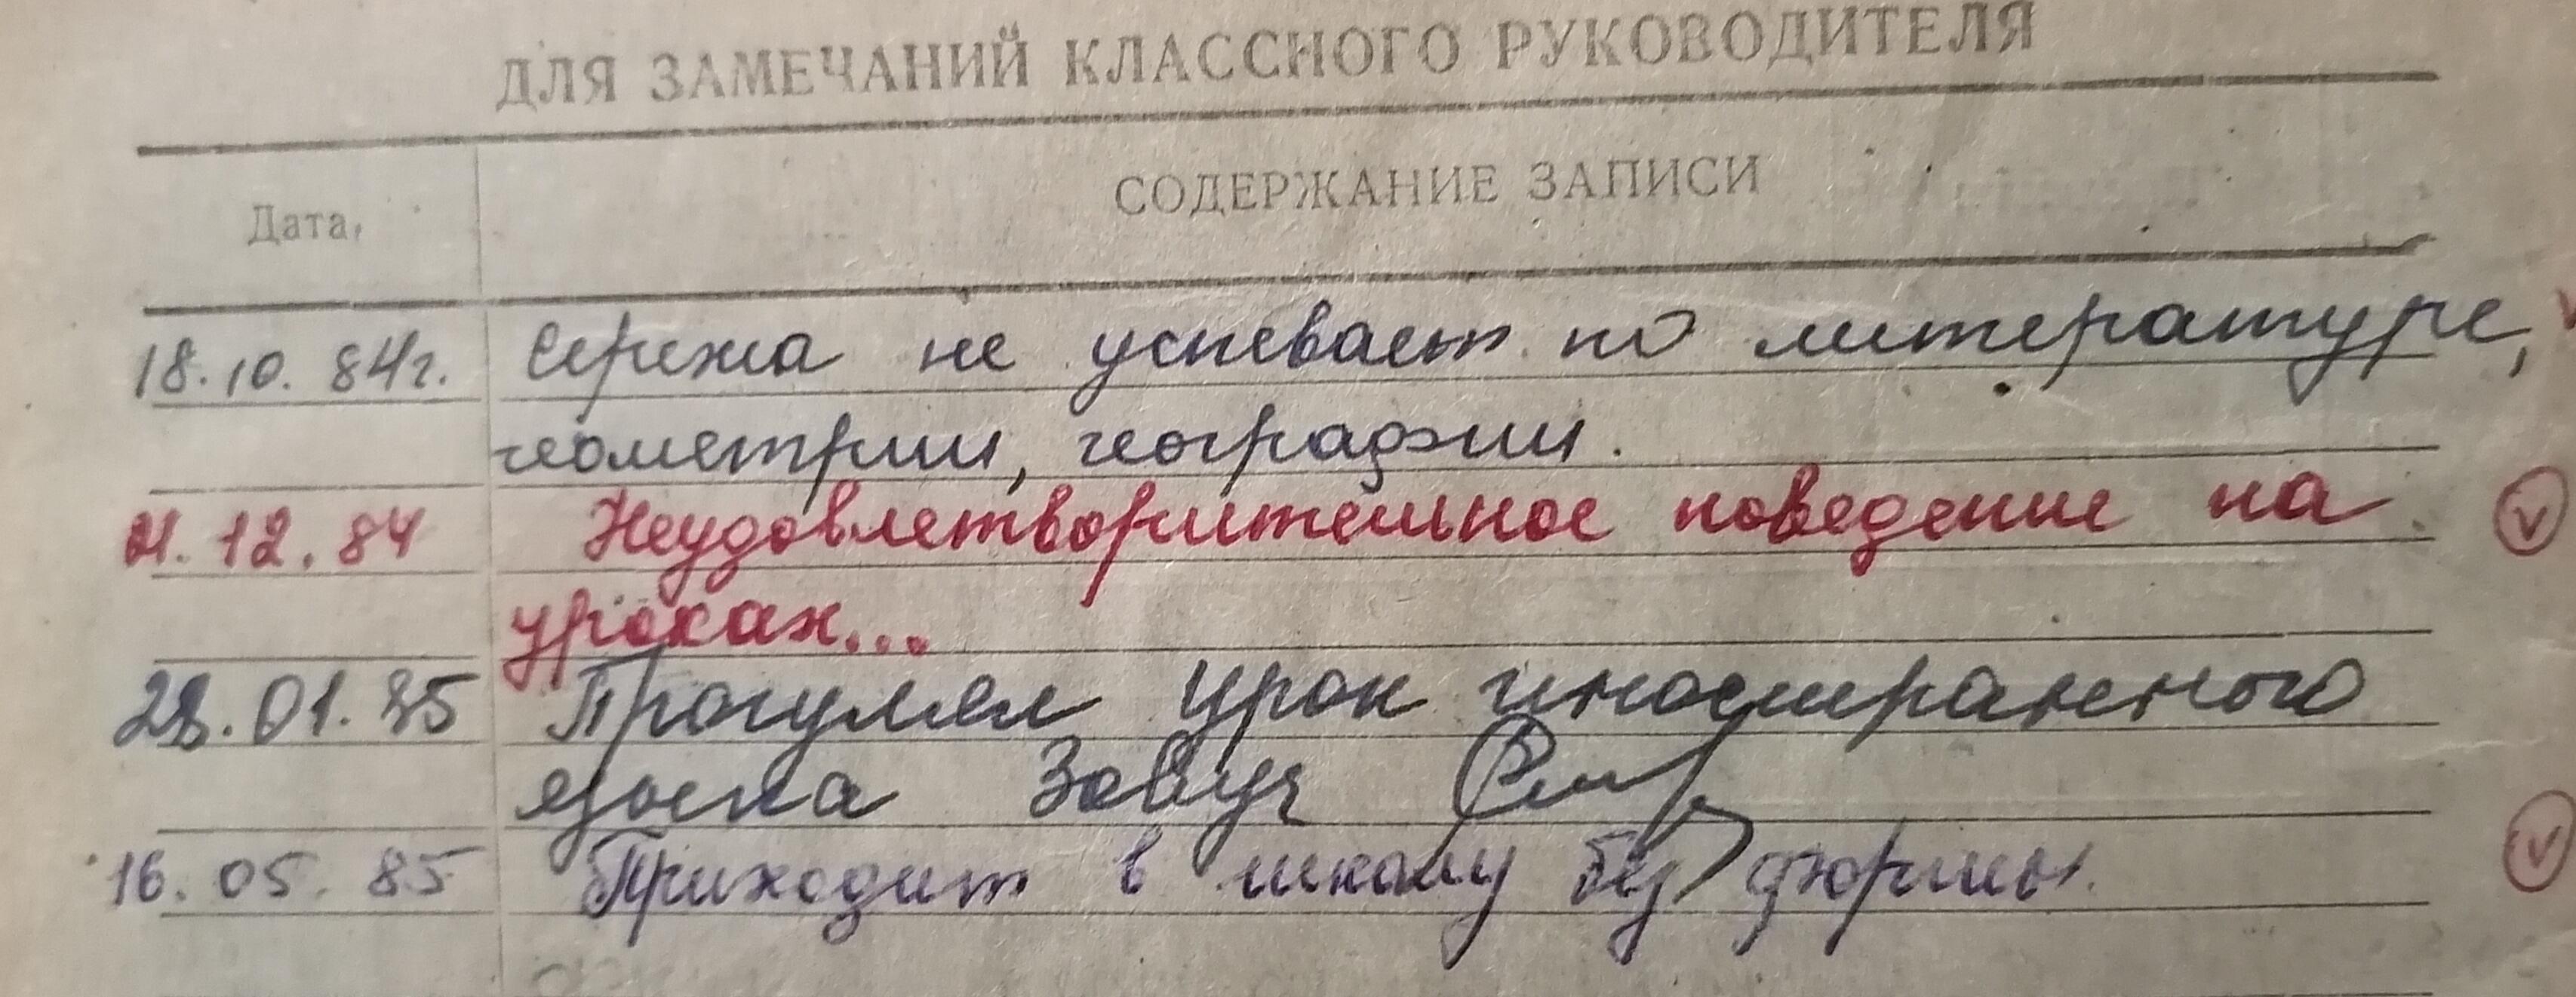 ДЛЯ ЗАМЕЧАНИЙ КЛАССНОГО РУКОВОДИТЕЛЯ
Дата, СОДЕРЖАНИЕ ЗАПИСИ
18.10.84г. Сережа не успевает по литературе,
геометрии, географии.
21.12.84 Неудовлетворительное поведение на
уроках...
28.01.85 Прогулял урок иностранного
языка Завуч
16.05.85 Приходит в школу без формы.